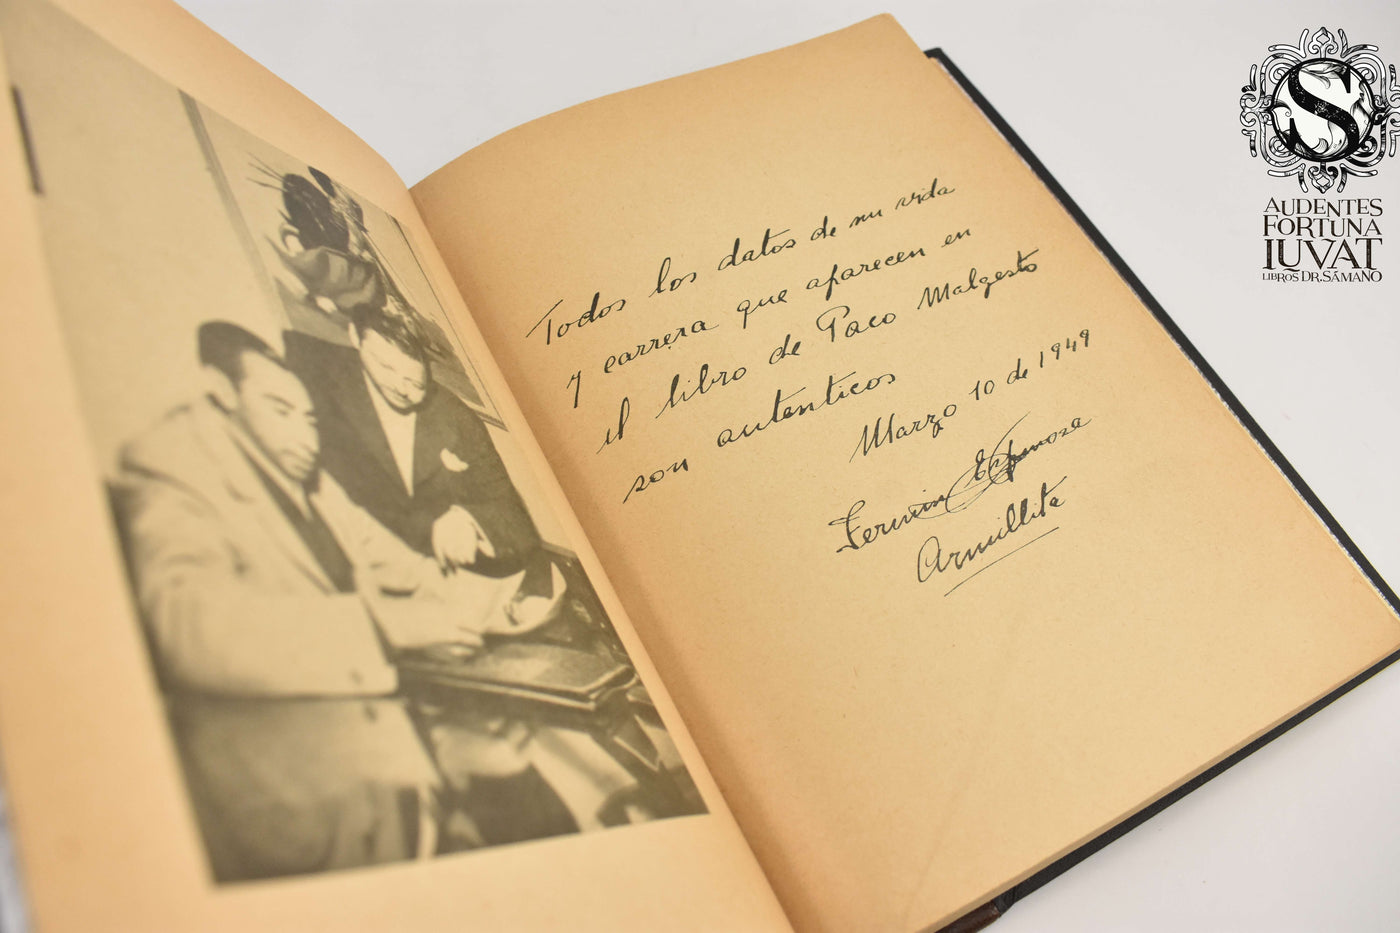 Todos los datos de mi vida
y carrera que aparecen en
el libro de Paco Malgesto
son autenticos
Marzo 10 de 1949
Fermin Espinosa
Armillita
S
AUDENTES
FORTUNA
IUVAT
LIBROS DR. SÁMANO